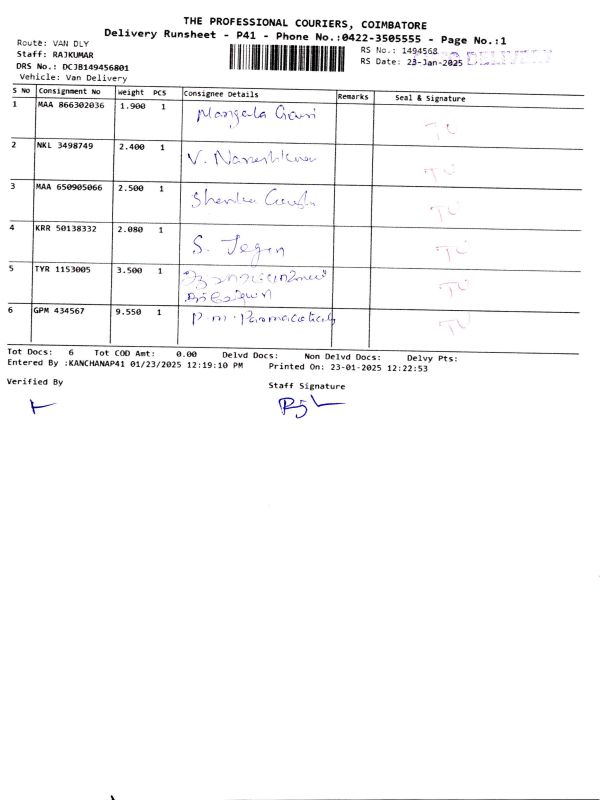 THE PROFESSIONAL COURIERS, COIMBATORE
Delivery Runsheet - P41 - Phone No.:0422-3505555 - Page No.:1
Route: VAN DLY
Staff: RAJKUMAR
DRS No.: DCJB149456801
Vehicle: Van Delivery
RS No.: 1494568
RS Date: 23-Jan-2025
DELIVERY
S No Consignment No Weight PCS Consignee Details Remarks Seal & Signature
1 MAA 866302036 1.900 1 Mangala Gauri TC
2 NKL 3498749 2.400 1 V. Nareshkumar TC
3 MAA 650905066 2.500 1 TC
4 KRR 50138332 2.080 1 S. Jegan TC
5 TYR 1153005 3.500 1 TC
6 GPM 434567 9.550 1 P.M. TC
Tot Docs: 6 Tot COD Amt: 0.00 Delvd Docs: Non Delvd Docs: Delvy Pts:
Entered By :KANCHANAP41 01/23/2025 12:19:10 PM Printed On: 23-01-2025 12:22:53
Verified By
Staff Signature